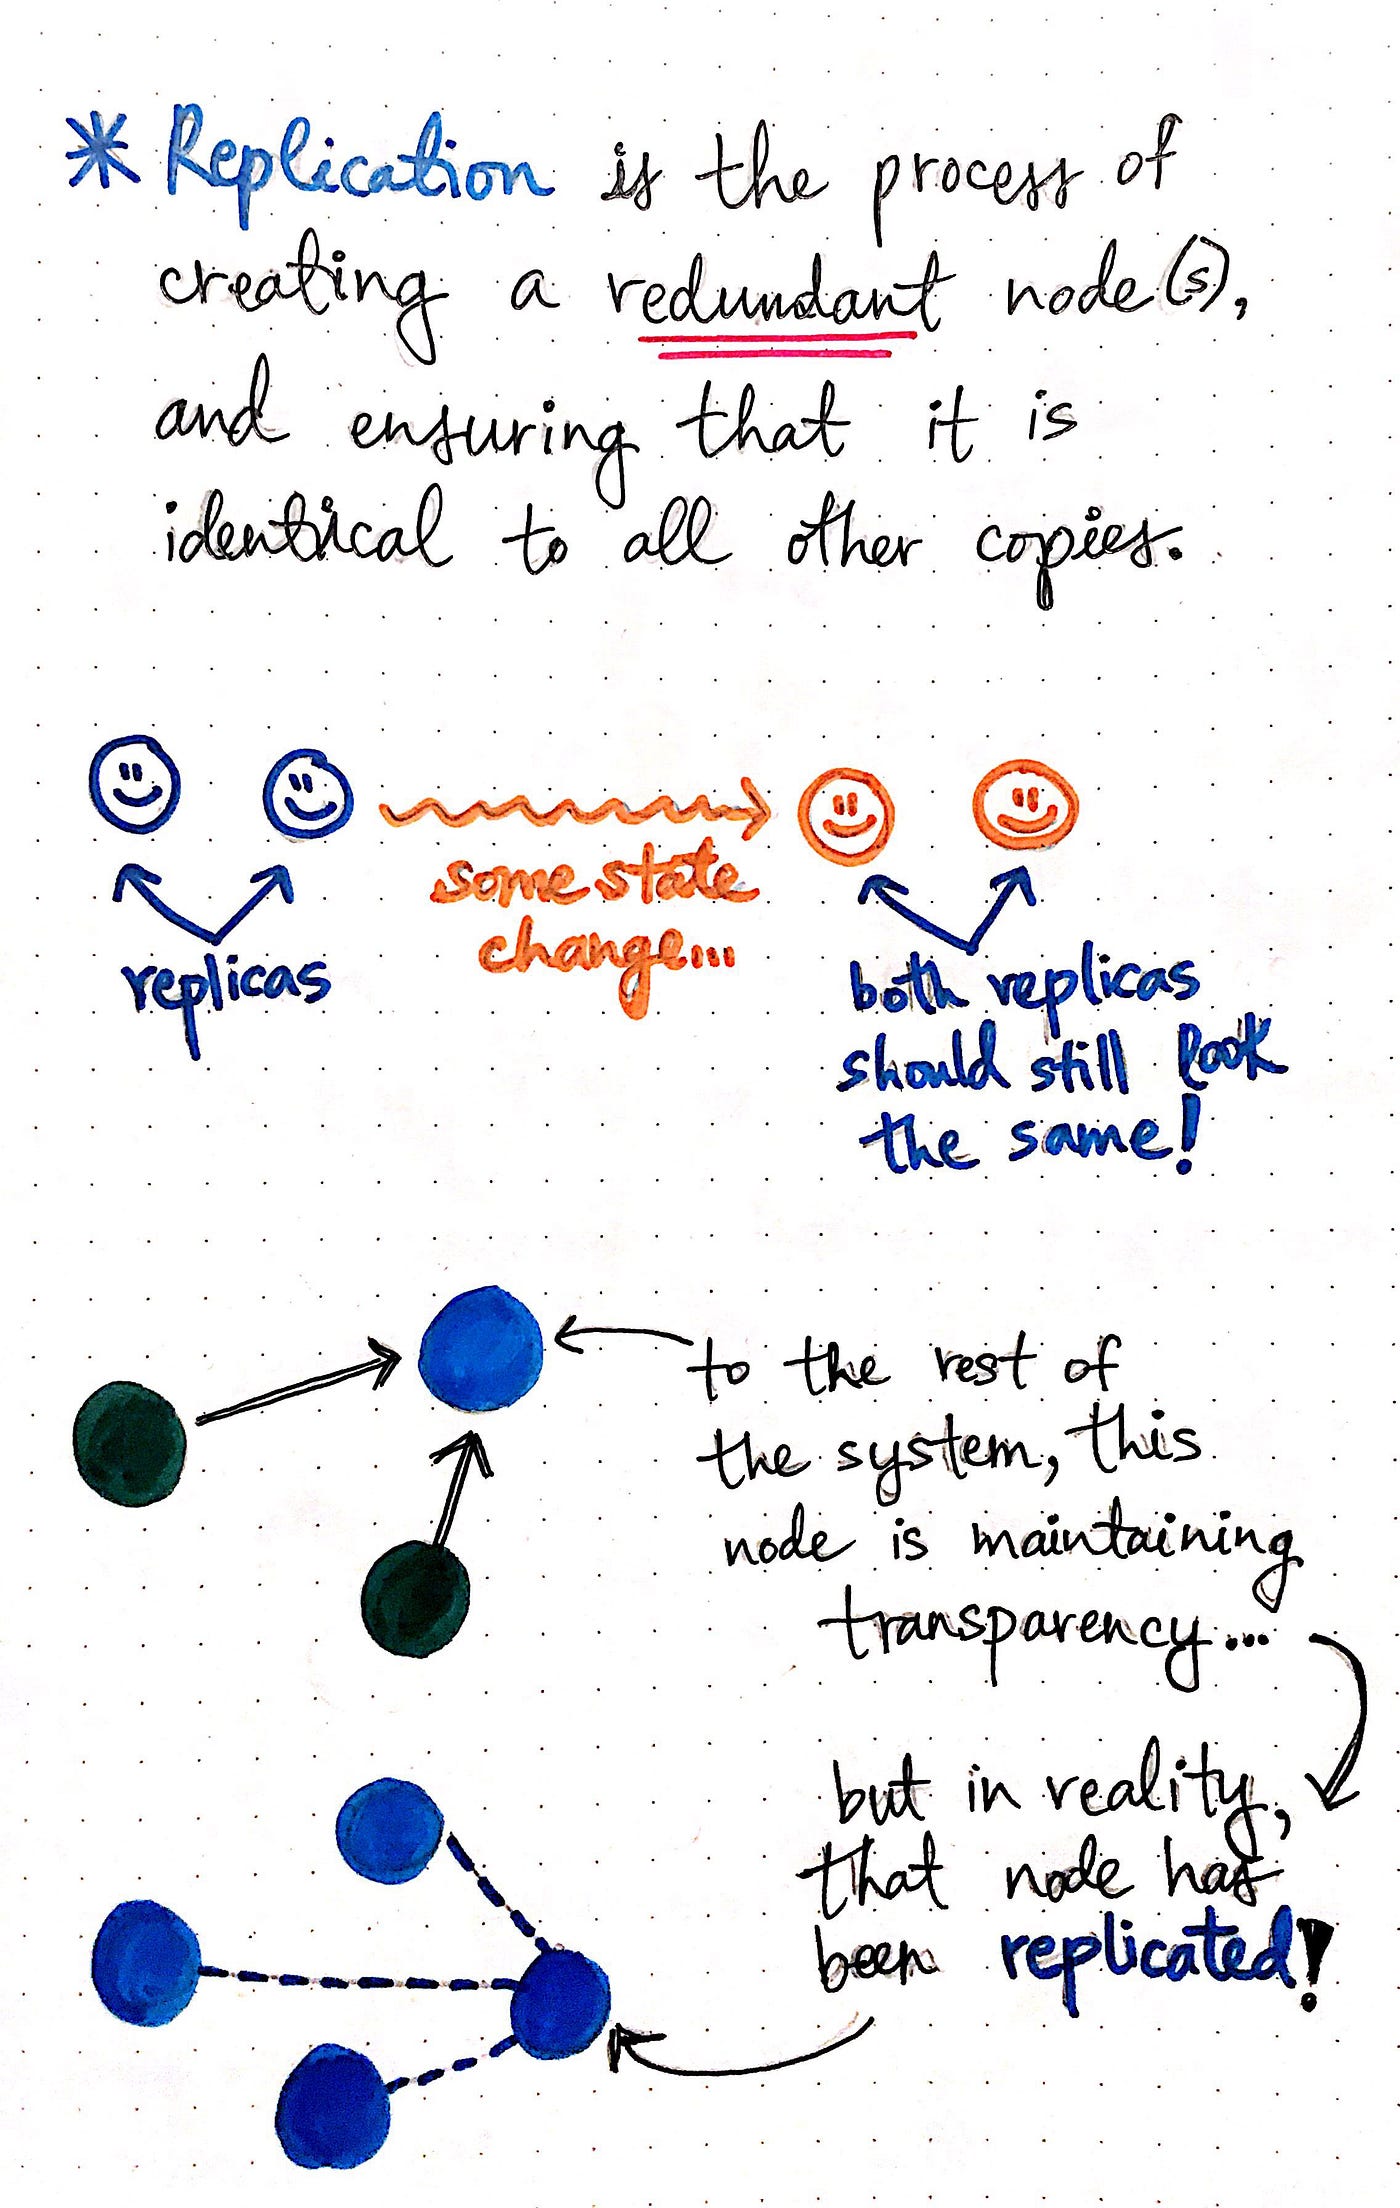 * Replication is the process of
creating a redundant node(s),
and ensuring that it is
identical to all other copies.
replicas
some state
change...
both replicas
should still look
the same!
to the rest of
the system, this
node is maintaining
transparency...
but in reality,
that node has
been replicated!